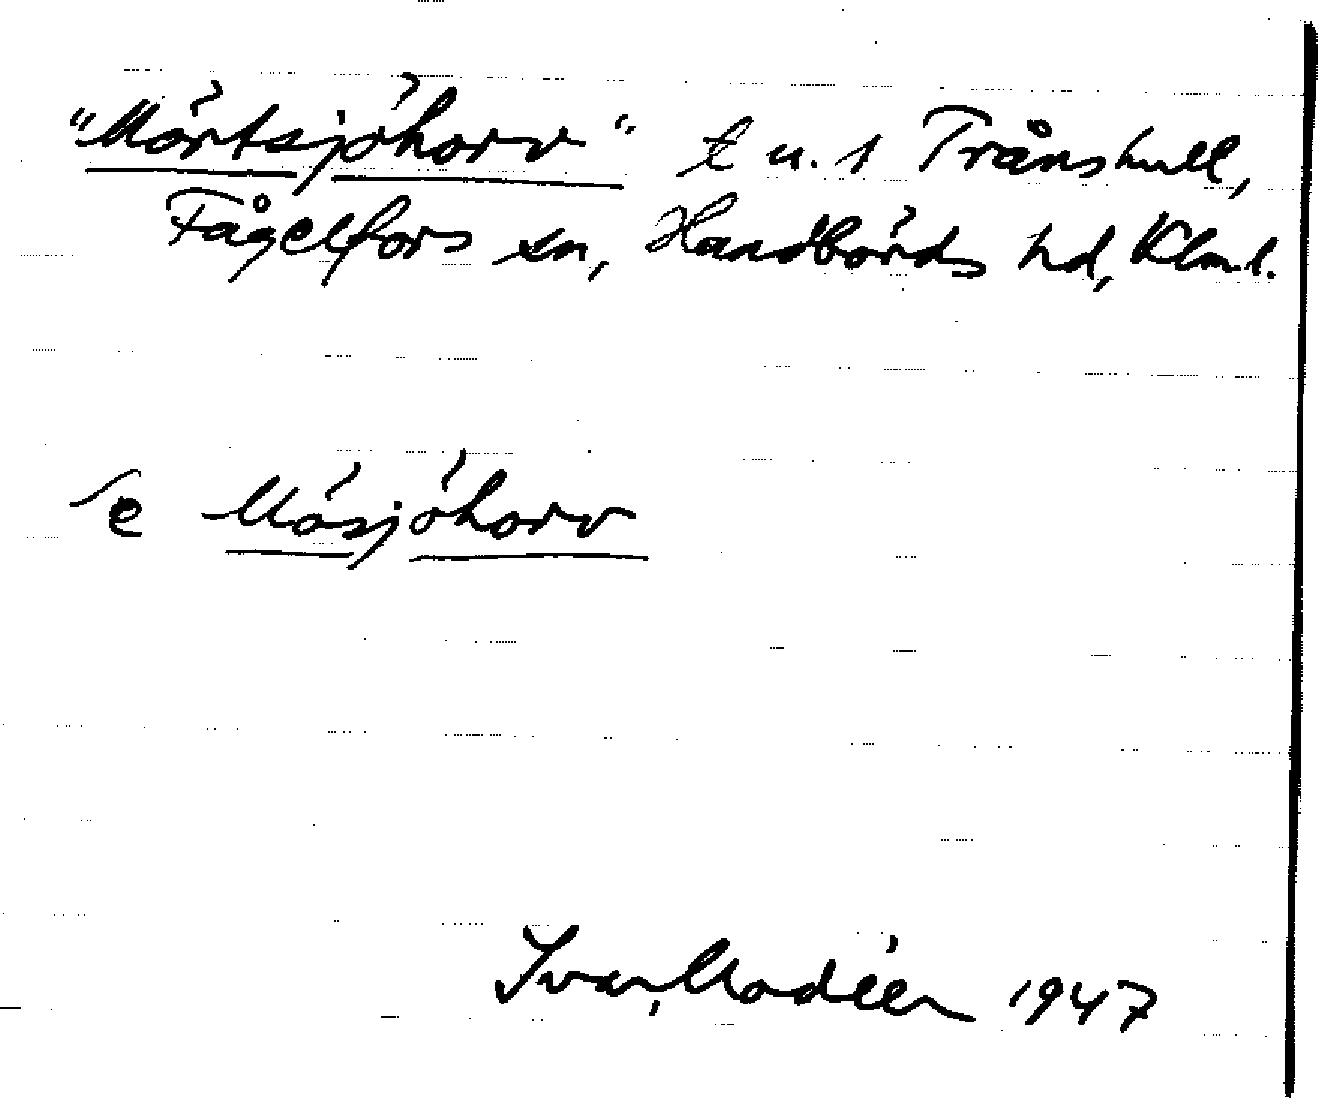 "Mörtsjöhorv" t u. 1 Trånshult,
Fågelfors sn, Handbörds hd, Klm.l.
Se Mösjöhorv
Ivar Modéer 1947